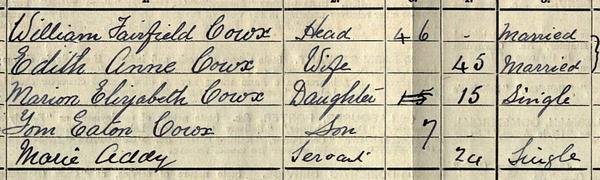 William Fairfield Cowx Head 46 - Married
Edith Anne Cowx Wife 45 Married
Marion Elizabeth Cowx Daughter 15 15 Single
Tom Eaton Cowx Son 7
Marie Addy Servant 24 Single